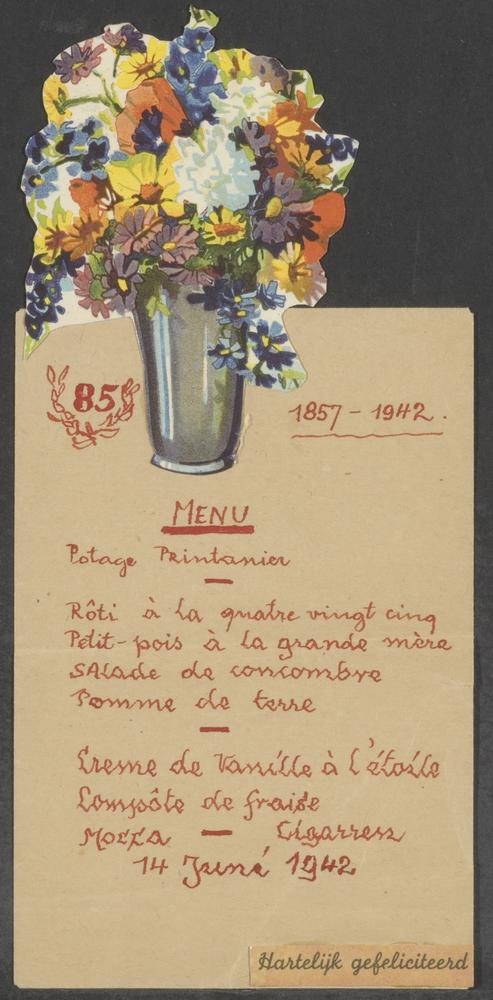 85
1857 - 1942.
MENU
Potage Printanier
Rôti à la quatre vingt cinq
Petit-pois à la grande mère
SAlade de concombre
Pomme de terre
Creme de Vanille à l'étoile
Compôte de fraise
Mocca — Cigarren
14 Juné 1942
Hartelijk gefeliciteerd